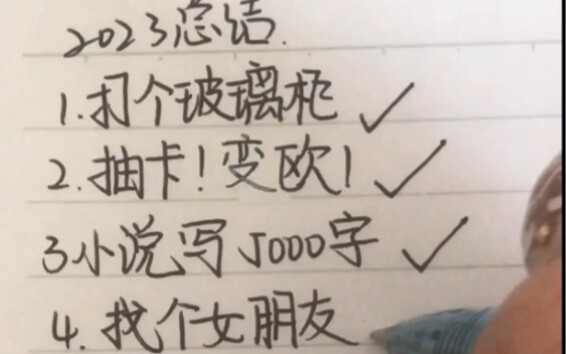 2023总结.
1.打个玻璃柜✓
2.抽卡!变欧!✓
3小说写5000字✓
4.找个女朋友